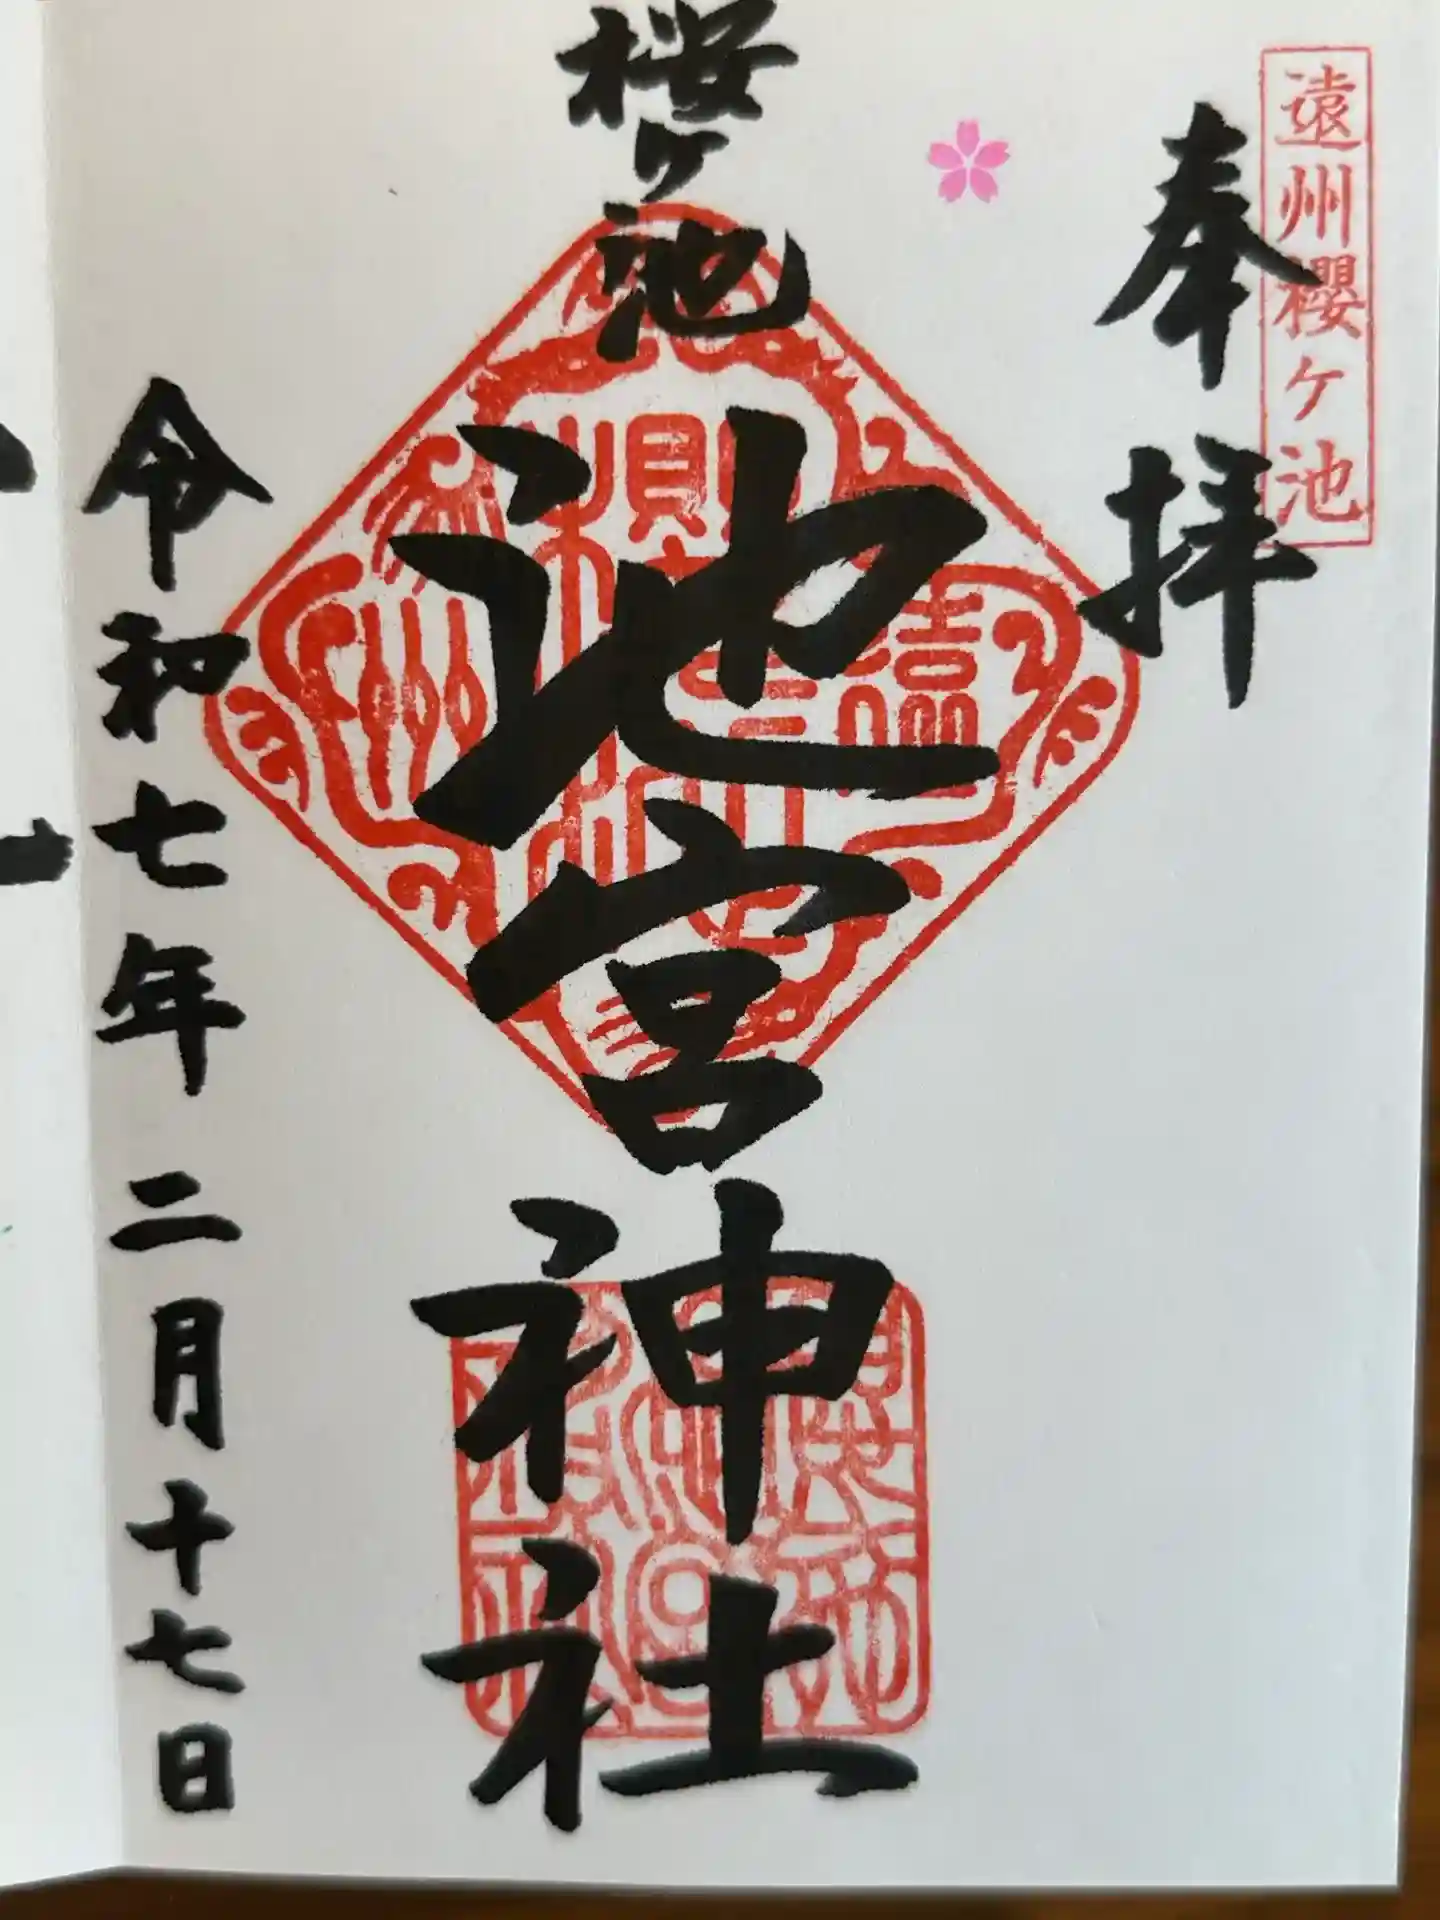 遠州櫻ケ池
奉拝
桜ヶ池
池宮神社
令和七年二月十七日